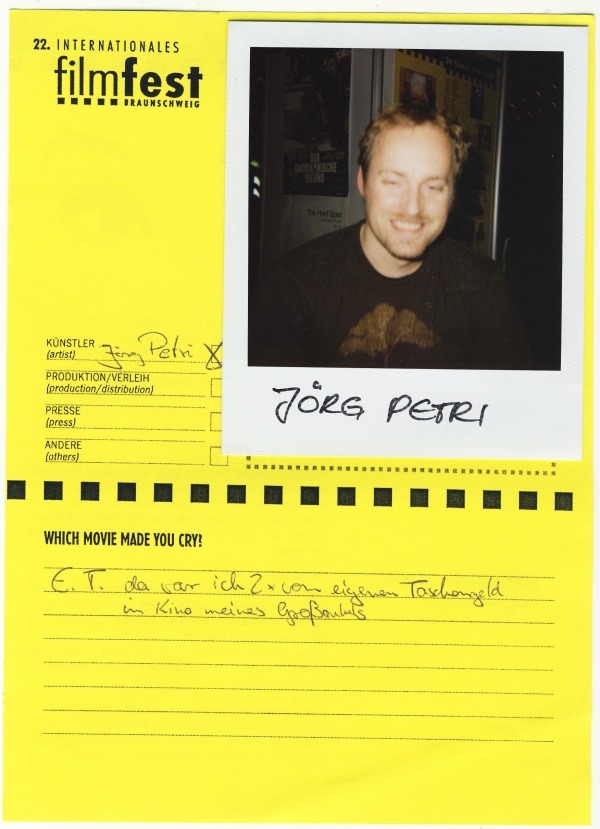 22. INTERNATIONALES
filmfest
BRAUNSCHWEIG
DER
AMERIKANISCHE
FREUND
The Red Spot
JÖRG PETRI
KÜNSTLER
(artist) Jörg Petri X
PRODUKTION/VERLEIH
(production/distribution)
PRESSE
(press)
ANDERE
(others)
WHICH MOVIE MADE YOU CRY?
E.T. da war ich 2x vom eigenen Taschengeld
im Kino meines Großonkels